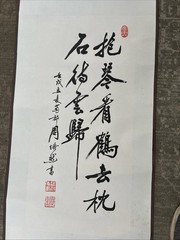 抱琴看鶴去枕
石待雲歸
壬戌立夏
周
書